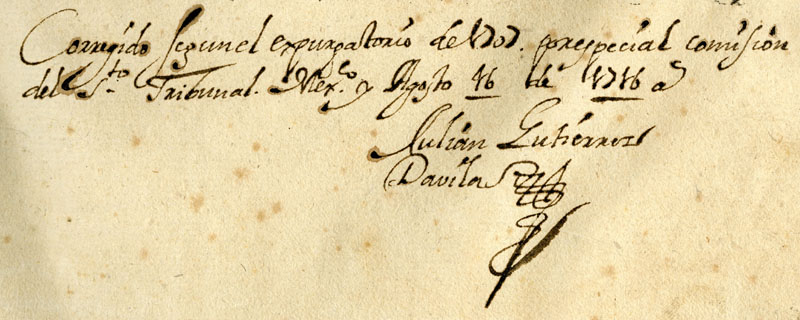 Corregido segun el expurgatorio de 1707. pr especial comision
del Sto Tribunal. Mexco y Agosto 16 de 1716 as
Julián Gutiérrez
Davila